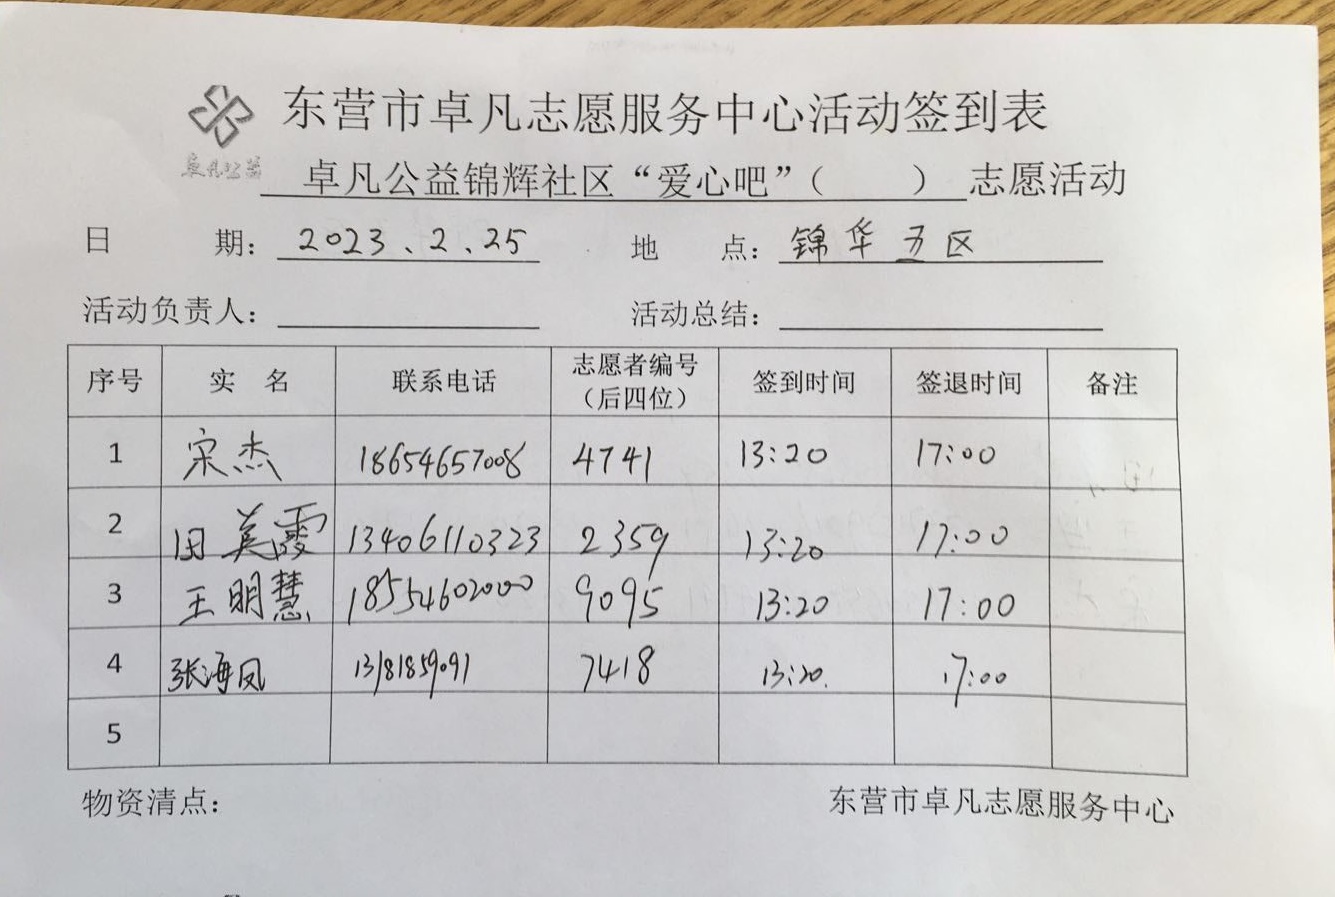 东营市卓凡志愿服务中心活动签到表
卓凡公益
卓凡公益锦辉社区“爱心吧”（ ） 志愿活动
日 期： 2023、2、25 地 点： 锦华五区
活动负责人： 活动总结：
序号 实 名 联系电话 志愿者编号（后四位） 签到时间 签退时间 备注
1 宋杰 18654657008 4741 13:20 17:00
2 田英霞 13406110323 2359 13:20 17:00
3 王明慧 18554602000 9095 13:20 17:00
4 张海凤 13181859091 7418 13:20 17:00
5
物资清点： 东营市卓凡志愿服务中心